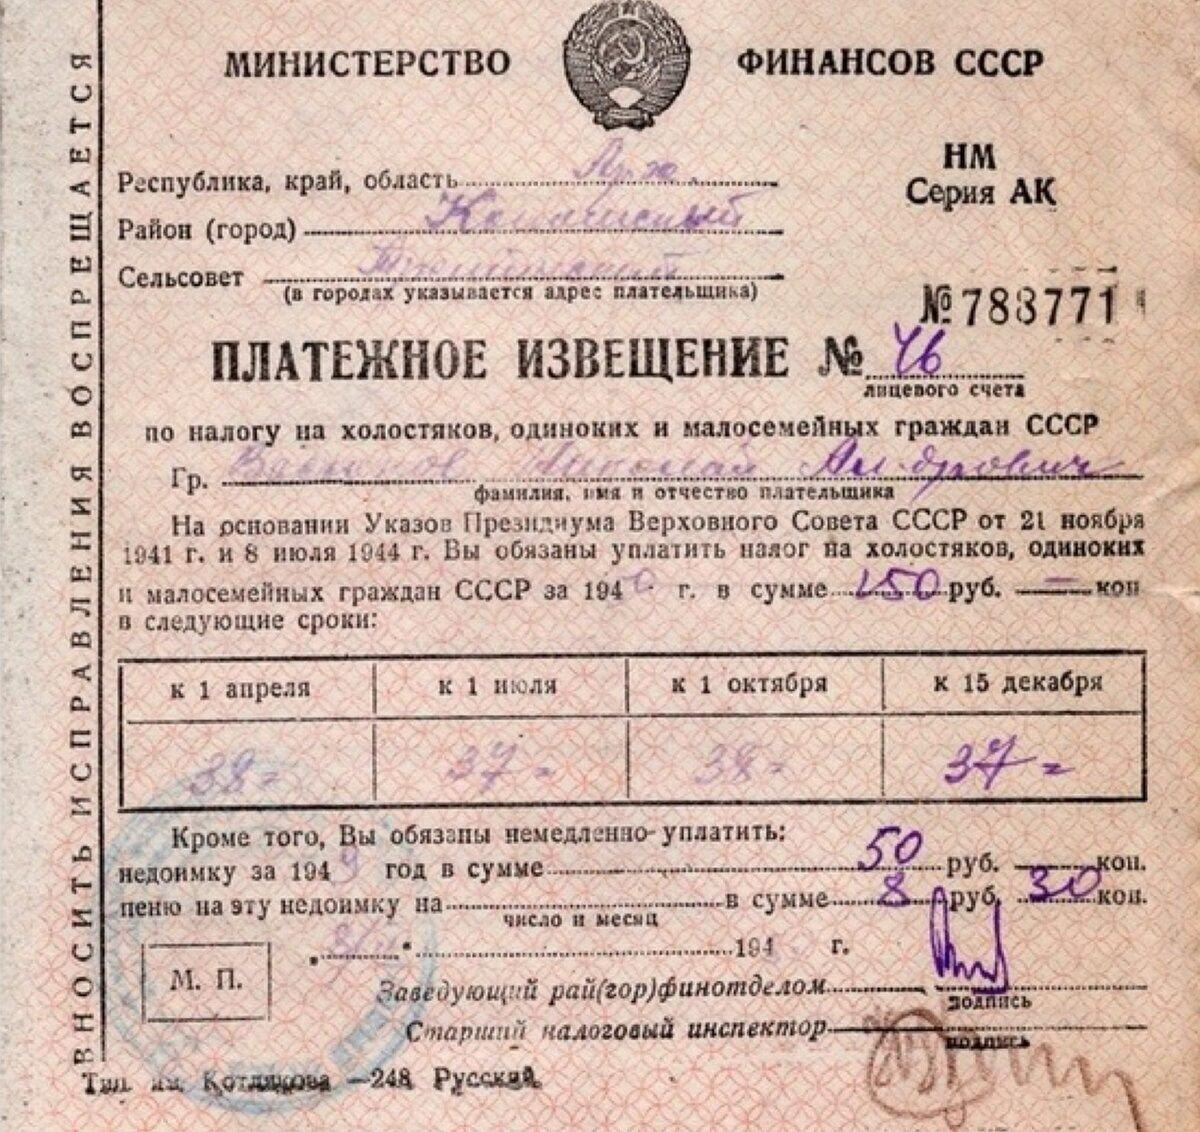 МИНИСТЕРСТВО ФИНАНСОВ СССР
НМ
Серия АК
Республика, край, область Арх.
Район (город)
Сельсовет
(в городах указывается адрес плательщика)
№ 788771
ПЛАТЕЖНОЕ ИЗВЕЩЕНИЕ № 46
лицевого счета
по налогу на холостяков, одиноких и малосемейных граждан СССР
Гр. Николай
фамилия, имя и отчество плательщика
На основании Указов Президиума Верховного Совета СССР от 21 ноября
1941 г. и 8 июля 1944 г. Вы обязаны уплатить налог на холостяков, одиноких
и малосемейных граждан СССР за 1940 г. в сумме 150 руб. — коп
в следующие сроки:
к 1 апреля к 1 июля к 1 октября к 15 декабря
38= 37= 38= 37=
Кроме того, Вы обязаны немедленно уплатить:
недоимку за 1949 год в сумме 50 руб. — коп.
пеню на эту недоимку на в сумме 8 руб. 30 коп.
число и месяц
194 г.
М. П.
Заведующий рай(гор)финотделом
подпись
Старший налоговый инспектор
подпись
Тип. им. Котлякова —248 Русский.
ВНОСИТЬ ИСПРАВЛЕНИЯ ВОСПРЕЩАЕТСЯ